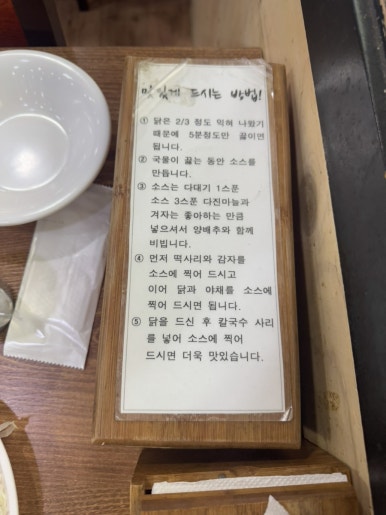 맛있게 드시는 방법!
① 닭은 2/3 정도 익혀 나왔기
때문에 5분정도만 끓이면
됩니다.
② 국물이 끓는 동안 소스를
만듭니다.
③ 소스는 다대기 1스푼
소스 3스푼 다진마늘과
겨자는 좋아하는 만큼
넣으셔서 양배추와 함께
비빕니다.
④ 먼저 떡사리와 감자를
소스에 찍어 드시고
이어 닭과 야채를 소스에
찍어 드시면 됩니다.
⑤ 닭을 드신 후 칼국수 사리
를 넣어 소스에 찍어
드시면 더욱 맛있습니다.